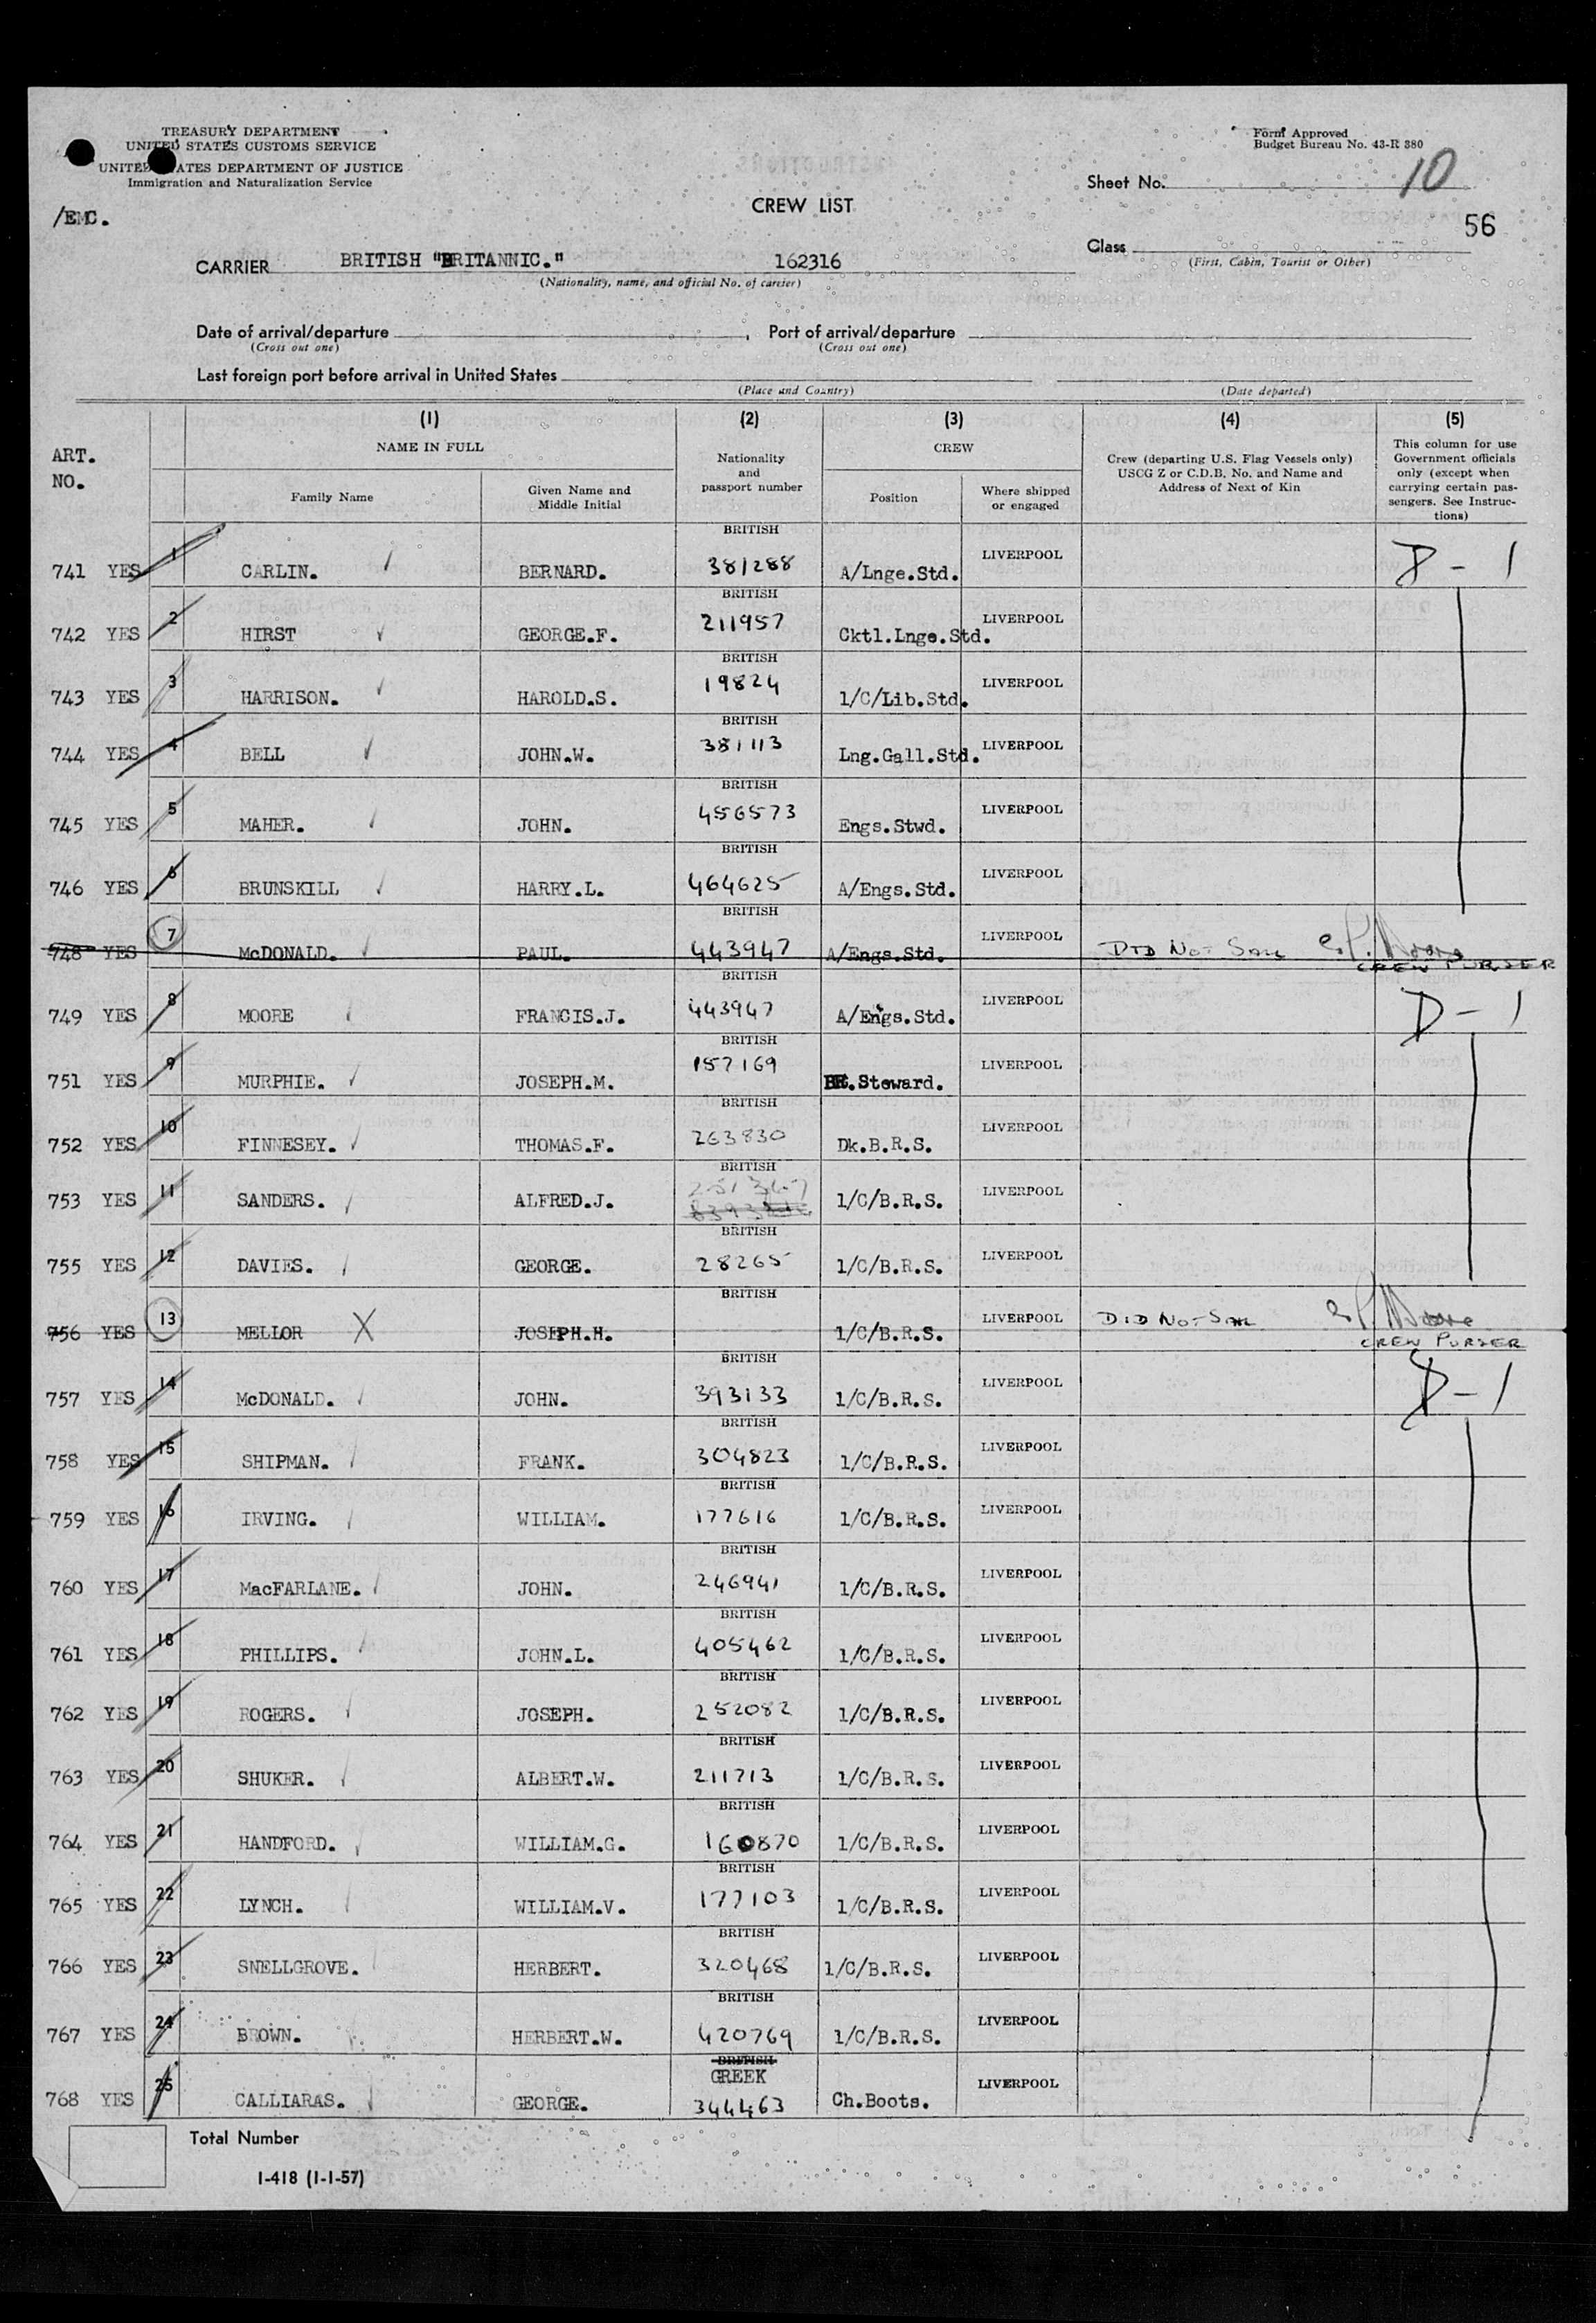 TREASURY DEPARTMENT
UNITED STATES CUSTOMS SERVICE
UNITED STATES DEPARTMENT OF JUSTICE
Immigration and Naturalization Service
/EMC.
Form Approved
Budget Bureau No. 43-R 380
Sheet No. 10
56
CREW LIST
Class
(First, Cabin, Tourist or Other)
CARRIER BRITISH "BRITANNIC." 162316
(Nationality, name, and official No. of carrier)
Date of arrival/departure , Port of arrival/departure
(Cross out one) (Cross out one)
Last foreign port before arrival in United States
(Place and Country) (Date departed)
ART. NO.
(1) NAME IN FULL
Family Name
Given Name and Middle Initial
(2) Nationality and passport number
(3) CREW
Position
Where shipped or engaged
(4) Crew (departing U.S. Flag Vessels only) USCG Z or C.D.B. No. and Name and Address of Next of Kin
(5) This column for use Government officials only (except when carrying certain passengers. See Instructions)
741 YES 1 CARLIN. BERNARD. BRITISH 381288 A/Lnge.Std. LIVERPOOL D-1
742 YES 2 HIRST GEORGE.F. BRITISH 211957 Cktl.Lnge.Std. LIVERPOOL
743 YES 3 HARRISON. HAROLD.S. BRITISH 19824 1/C/Lib.Std. LIVERPOOL
744 YES 4 BELL JOHN.W. BRITISH 381113 Lng.Gall.Std. LIVERPOOL
745 YES 5 MAHER. JOHN. BRITISH 456573 Engs.Stwd. LIVERPOOL
746 YES 6 BRUNSKILL HARRY.L. BRITISH 464625 A/Engs.Std. LIVERPOOL
748 YES 7 McDONALD. PAUL. BRITISH 443947 A/Engs.Std. LIVERPOOL DID NOT SAIL CREW PURSER
749 YES 8 MOORE FRANCIS.J. BRITISH 443947 A/Engs.Std. LIVERPOOL D-1
751 YES 9 MURPHIE. JOSEPH.M. BRITISH 157169 BR.Steward. LIVERPOOL
752 YES 10 FINNESEY. THOMAS.F. BRITISH 263830 Dk.B.R.S. LIVERPOOL
753 YES 11 SANDERS. ALFRED.J. BRITISH 1/C/B.R.S. LIVERPOOL
755 YES 12 DAVIES. GEORGE. BRITISH 28265 1/C/B.R.S. LIVERPOOL
756 YES 13 MELLOR X JOSEPH.H. BRITISH 1/C/B.R.S. LIVERPOOL DID NOT SAIL CREW PURSER
757 YES 14 McDONALD. JOHN. BRITISH 393133 1/C/B.R.S. LIVERPOOL D-1
758 YES 15 SHIPMAN. FRANK. BRITISH 304823 1/C/B.R.S. LIVERPOOL
759 YES 16 IRVING. WILLIAM. BRITISH 177616 1/C/B.R.S. LIVERPOOL
760 YES 17 MacFARLANE. JOHN. BRITISH 246941 1/C/B.R.S. LIVERPOOL
761 YES 18 PHILLIPS. JOHN.L. BRITISH 405462 1/C/B.R.S. LIVERPOOL
762 YES 19 ROGERS. JOSEPH. BRITISH 252082 1/C/B.R.S. LIVERPOOL
763 YES 20 SHUKER. ALBERT.W. BRITISH 211713 1/C/B.R.S. LIVERPOOL
764 YES 21 HANDFORD. WILLIAM.G. BRITISH 160870 1/C/B.R.S. LIVERPOOL
765 YES 22 LYNCH. WILLIAM.V. BRITISH 177103 1/C/B.R.S. LIVERPOOL
766 YES 23 SNELLGROVE. HERBERT. BRITISH 320468 1/C/B.R.S. LIVERPOOL
767 YES 24 BROWN. HERBERT.W. BRITISH 420769 1/C/B.R.S. LIVERPOOL
768 YES 25 CALLIARAS. GEORGE. BRITISH GREEK 344463 Ch.Boots. LIVERPOOL
Total Number
I-418 (1-1-57)